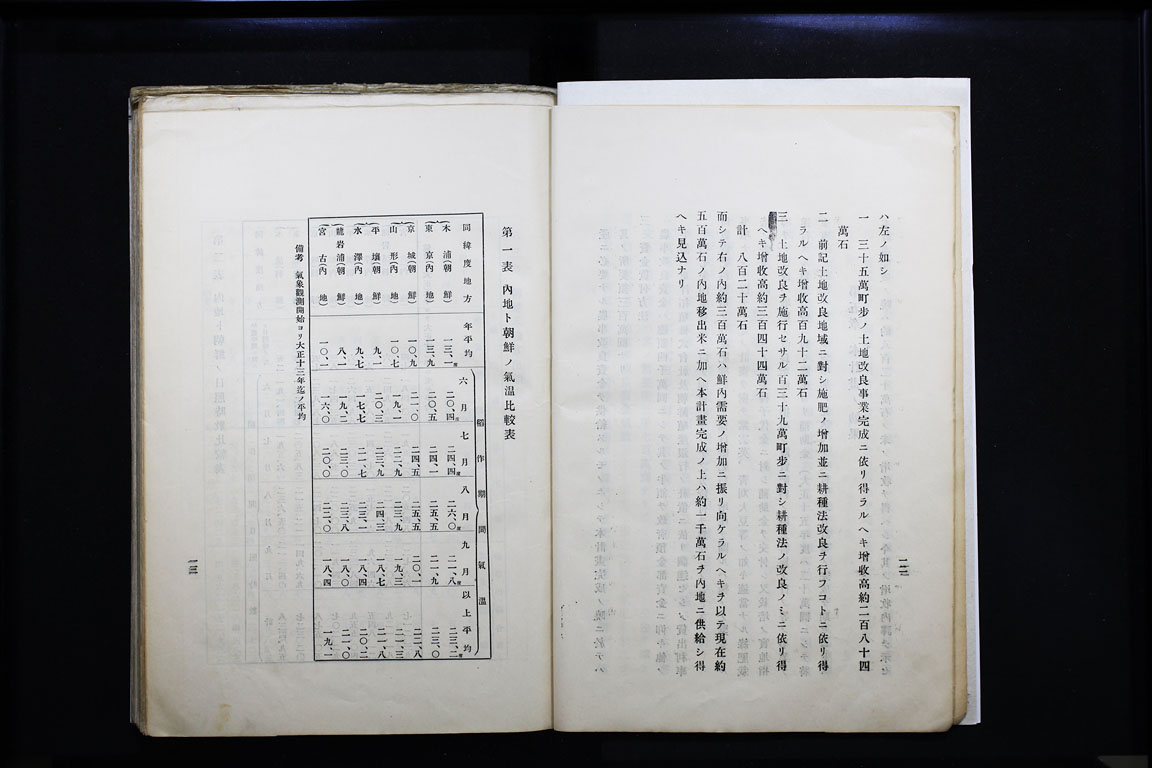 ハ左ノ如シ
一 三十五萬町步ノ土地改良事業完成ニ依リ得ラルヘキ增收高約二百八十四
萬石
二 前記土地改良地域ニ對シ施肥ノ增加並ニ耕種法改良ヲ行フコトニ依リ得
ラルヘキ增收高百九十二萬石
三 土地改良ヲ施行セサル百三十九萬町步ニ對シ耕種法ノ改良ノミニ依リ得
ヘキ增收高約三百四十四萬石
計 八百二十萬石
而シテ右ノ內約三百萬石ハ鮮內需要ノ增加ニ振リ向ケラルヘキヲ以テ現在約
五百萬石ノ內地移出米ニ加ヘ本計畫完成ノ上ハ約一千萬石ヲ內地ニ供給シ得
ヘキ見込ナリ
一二
第一表 內地ト朝鮮ノ氣溫比較表
同緯度地方 年平均 稻作期間氣溫 六月 七月 八月 九月 以上平均
木浦(朝鮮) 一三、一度 二〇、四度 二四、四度 二六、〇度 二一、八度 二三、二度
東京(內地) 一三、九 二〇、五 二四、一 二五、五 二一、九 二三、〇
京城(朝鮮) 一〇、九 二一、〇 二四、五 二五、五 二〇、一 二二、八
山形(內地) 一〇、七 一九、一 二二、九 二三、九 一九、三 二一、三
平壤(朝鮮) 九、一 二〇、三 二三、九 二四、三 一八、七 二一、八
水澤(內地) 九、七 一七、七 二一、七 二三、一 一八、四 二〇、二
龍岩浦(朝鮮) 八、一 一九、二 二三、〇 二三、八 一八、〇 二一、〇
宮古(內地) 一〇、一 一六、〇 二〇、〇 二二、〇 一八、四 一九、一
備考 氣象觀測開始ヨリ大正十三年迄ノ平均
一三